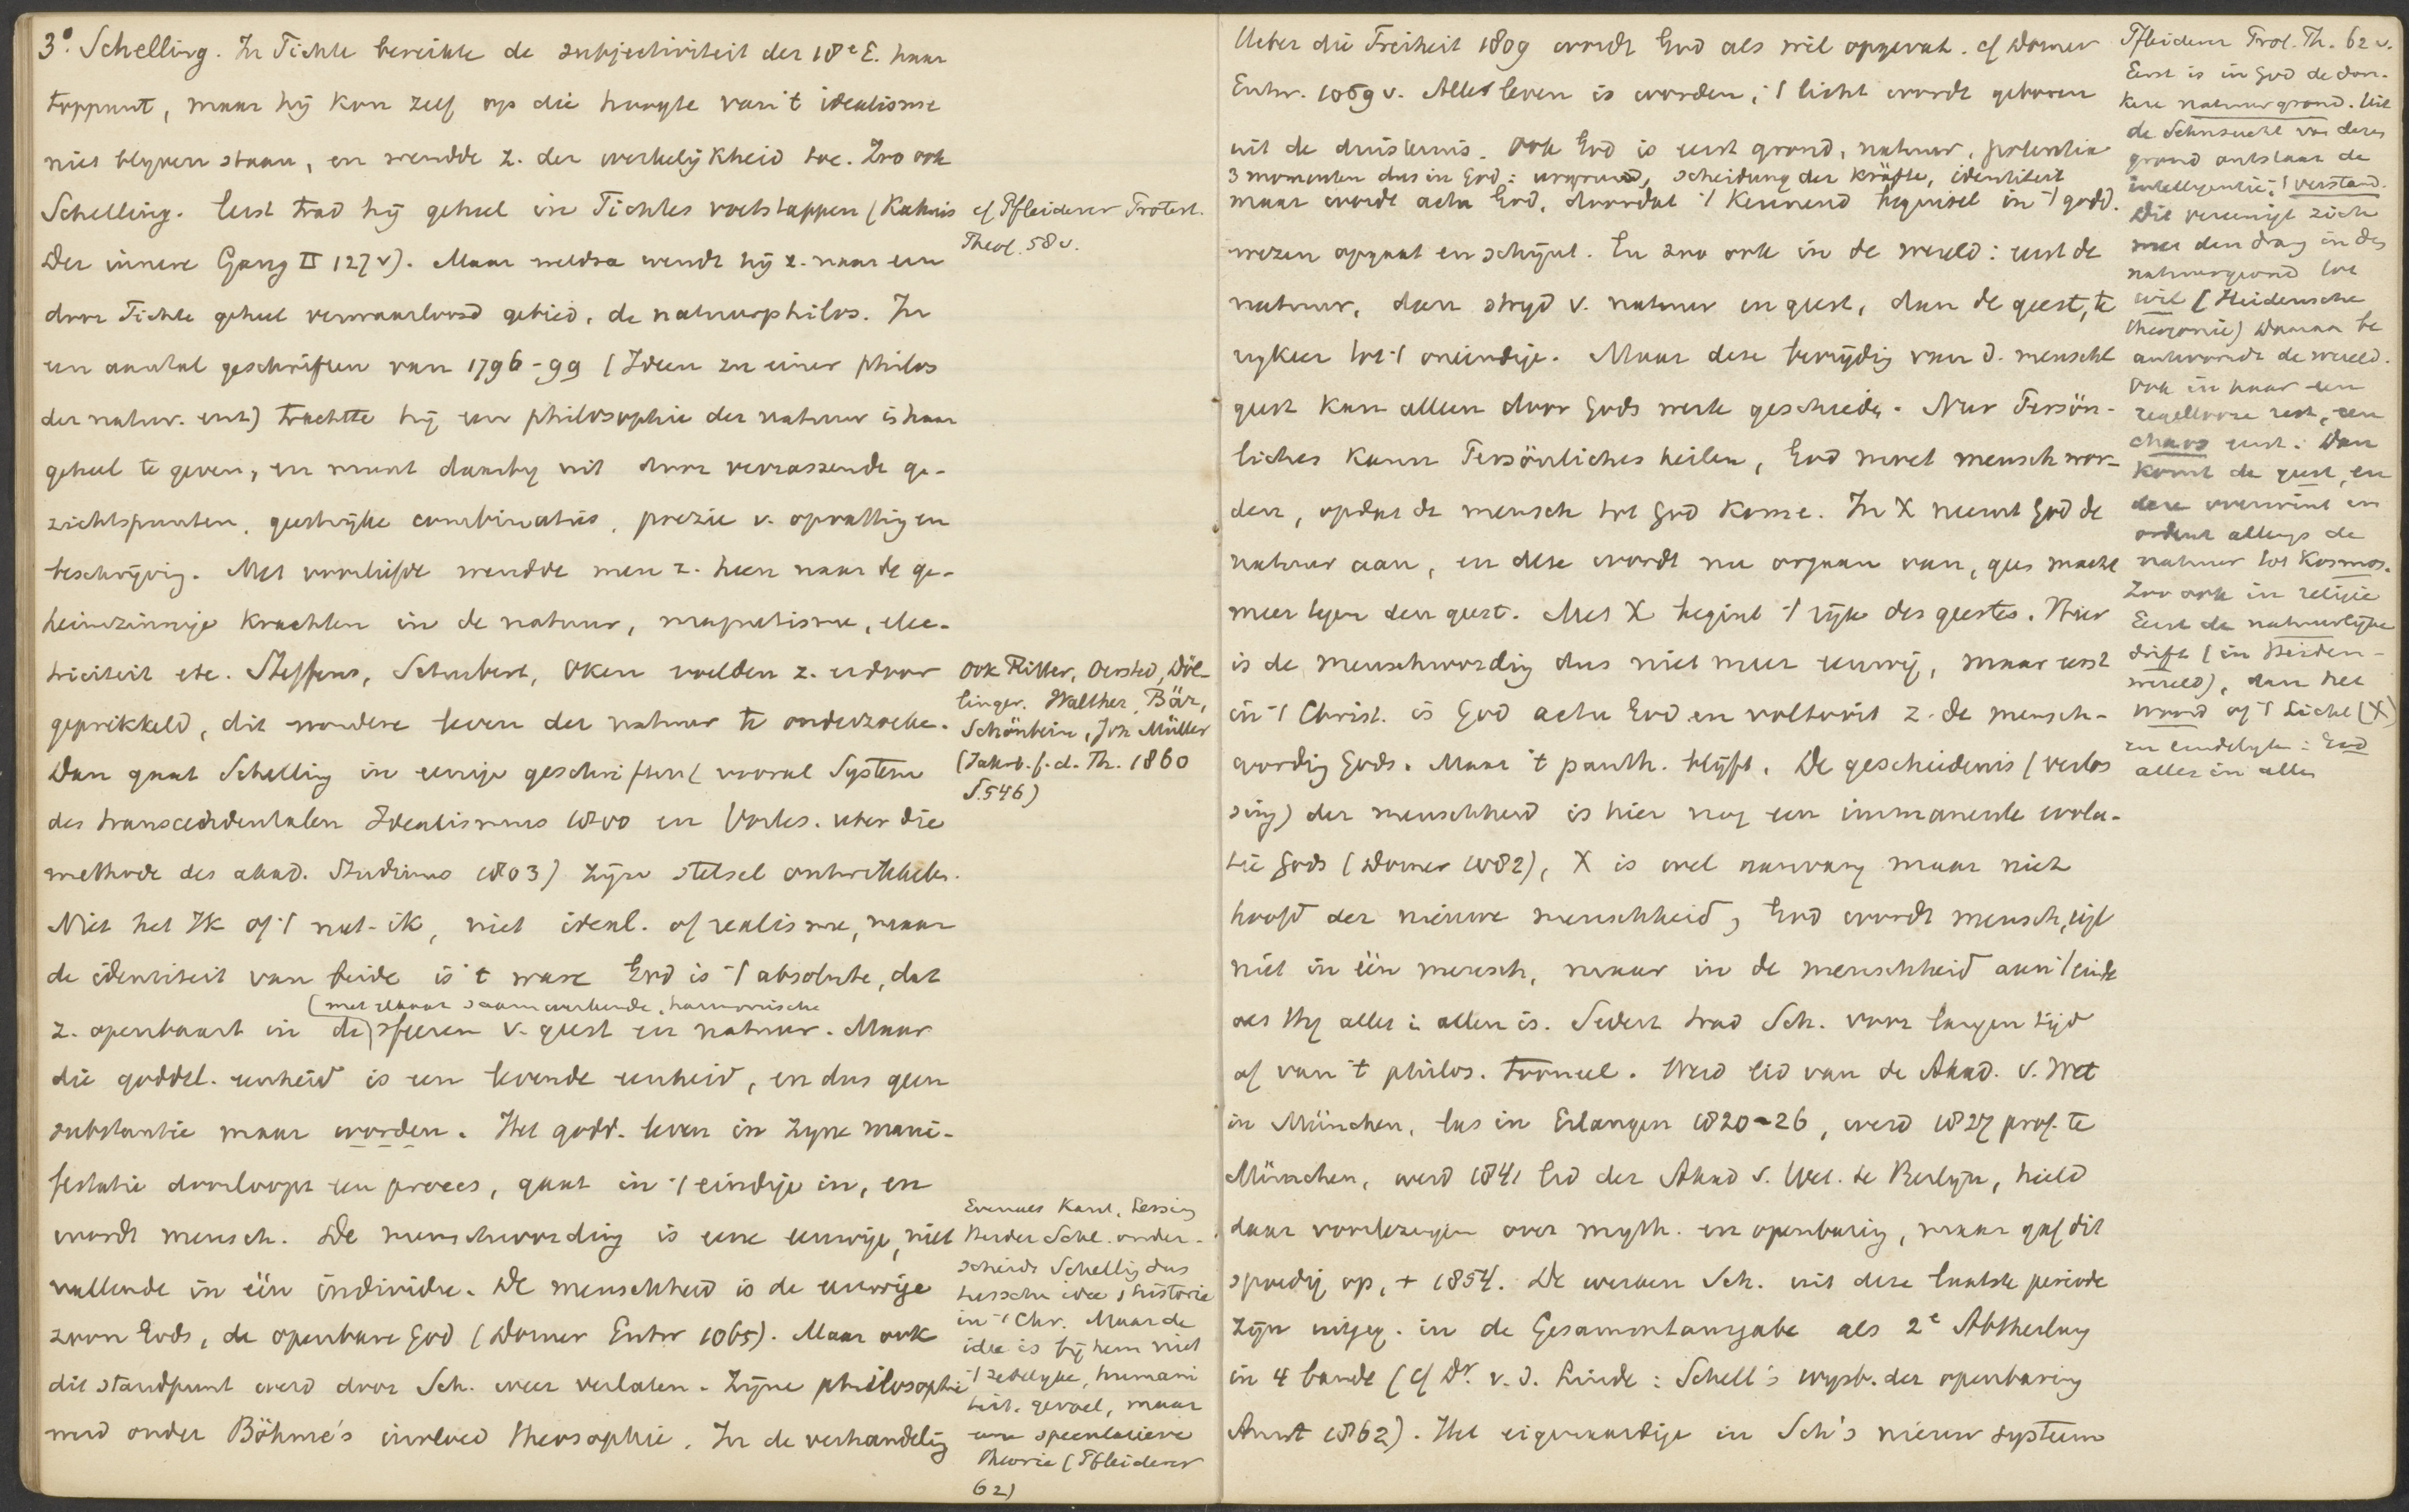 3°. Schelling. In Fichte bereikte de subjectiviteit der 18e E. haar
toppunt, maar hij kon zelf op die hoogte van 't idealisme
niet blijven staan, en wendde z. der werkelijkheid toe. Zoo ook
Schelling. Eerst trad hij geheel in Fichtes voetstappen (Kahnis
Der innere Gang II 127 v). Maar weldra wendt hij z. naar een
door Fichte geheel verwaarloosd gebied, de natuurphilos. In
een aantal geschriften van 1796-99 (Ideen zu einer philos
der natur. enz) trachtte hij een philosophie der natuur in haar
geheel te geven, en munt daarbij uit door verrassende ge-
zichtspunten, geestrijke combinaties, poezie v. opvatting en
beschrijving. Met voorliefde wendde men z. heen naar de ge-
heimzinnige krachten in de natuur, magnetisme, elec-
triciteit etc. Steffens, Schubert, Oken voelden z. erdoor
geprikkeld, dit wondere leven der natuur te onderzoeken.
Dan gaat Schelling in eenige geschriften (vooral System
des transcendentalen Idealismus 1800 en Vorles. uber die
methode des akad. Studiums 1803) zijn stelsel ontwikkelen.
Niet het Ik of 't niet-ik, niet ideal. of realisme, maar
de identiteit van beide is 't ware God is 't absolute, dat
(met elkaar saamwerkende, harmonische
z. openbaart in de) sfeeren v. geest en natuur. Maar
die goddel. eenheid is een levende eenheid, en dus geen
substantie maar worden. Het godd. leven in zijne mani-
festatie doorloopt een proces, gaat in 't eindige in, en
wordt mensch. De menschwording is eene eeuwige, niet
vallende in één individu. De menschheid is de eeuwige
zoon Gods, de openbare God (Dorner Entw 1065). Maar ook
dit standpunt werd door Sch. weer verlaten. Zijne philosophie
werd onder Böhme's invloed theosophie. In de verhandelig
cf Pfleiderer Protest.
Theol. 58 v.
Ook Ritter, Oersted, Döl-
linger, Walther, Bär,
Schönbein, Joh Müller
(Jahrb. f. d. Th. 1860
S. 546)
Evenals Kant, Lessing
Herder Schl. onder-
scheidt Schellig dus
tusschen idee & historie
in 't Chr. Maar de
idee is bij hem niet
't zedelijke, humani
teit. gevoel, maar
eene speculatieve
theorie (Pfleiderer
62)
Ueber die Freiheit 1809 wordt God als wil opgevat. cf Dorner
Entw. 1069 v. Alles leven is worden; 't licht wordt geboren
uit de duisternis. Ook God is eerst grond, natuur, potentia
3 momenten dus in God: urgrund, scheidung der kräfte, identiteit
maar wordt actu God, doordat 't kennend beginsel in 't godd.
wezen opgaat en schijnt. En zoo ook in de wereld: eerst de
natuur, dan strijd v. natuur en geest, dan de geest, te
rugkeer tot 't oneindige. Maar deze bevrijdig van d. menschl
geest kan alleen door Gods werk geschieden. Nur Persön-
liches kann Persönliches heilen, God moet mensch wor-
den, opdat de mensch tot God kome. In X neemt God de
natuur aan, en deze wordt nu orgaan van, geen macht
meer tegen den geest. Met X begint 't rijk des geestes. Hier
is de menschwordig dus niet meer eeuwig, maar eerst
in 't Christ. is God actu God en voltooit z. de mensch-
wordig Gods. Maar 't panth. blijft. De geschiedenis (verlos
sing) der menschheid is hier nog een immanente evolu-
tie Gods (Dorner 1082), X is wel aanvang maar niet
hoofd der nieuwe menschheid, God wordt mensch, eigl
niet in één mensch, maar in de menschheid aan 't einde
als Hij alles in allen is. Sedert trad Sch. voor langen tijd
af van 't philos. tooneel. Werd lid van de Akad. v. Wet
in München, las in Erlangen 1820-26, werd 1827 prof. te
München, werd 1841 lid der Akad v. Wet. te Berlijn, hield
daar voorlezingen over myth. en openbarig, maar gaf dit
spoedig op, + 1854. De werken Sch. uit deze laatste periode
zijn uitgeg. in de Gesammtausgabe als 2e Abtheilung
in 4 bande (cf Dr. v. d. Linde: Schell's wijsb. der openbaring
Amst 1862). Het eigenaardige in Sch's nieuw systeem
Pfleiderer Prot. Th. 62 v.
Eerst is in God de don-
kere natuurgrond. Uit
de Sehnsucht van dezen
grond ontstaat de
intelligentie, 't verstand.
Dit vereenigt zich
met den drang in den
natuurgrond tot
wil (Heidensche
theogonie) Daaraan be
antwoordt de wereld.
Ook in haar een
regellooze rest, een
chaos eerst. Dan
komt de geest, en
deze overwint en
ordent allengs de
natuur tot Kosmos.
Zoo ook in religie
Eerst de natuurlijke
drift (in Heiden-
wereld), dan het
woord of 't Licht (X)
en eindelijk: God
alles in allen